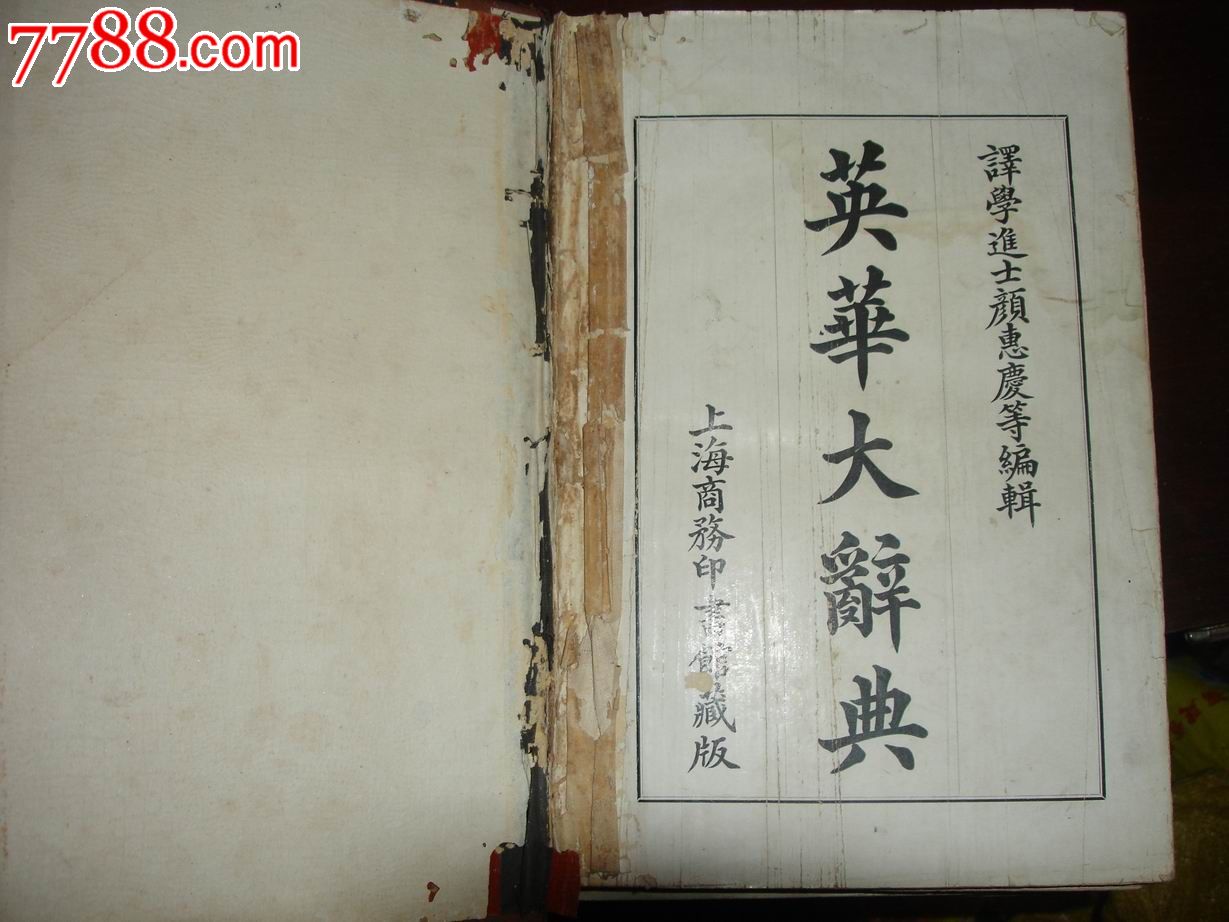 7788.com
譯學進士顏惠慶等編輯
英華大辭典
上海商務印書館藏版